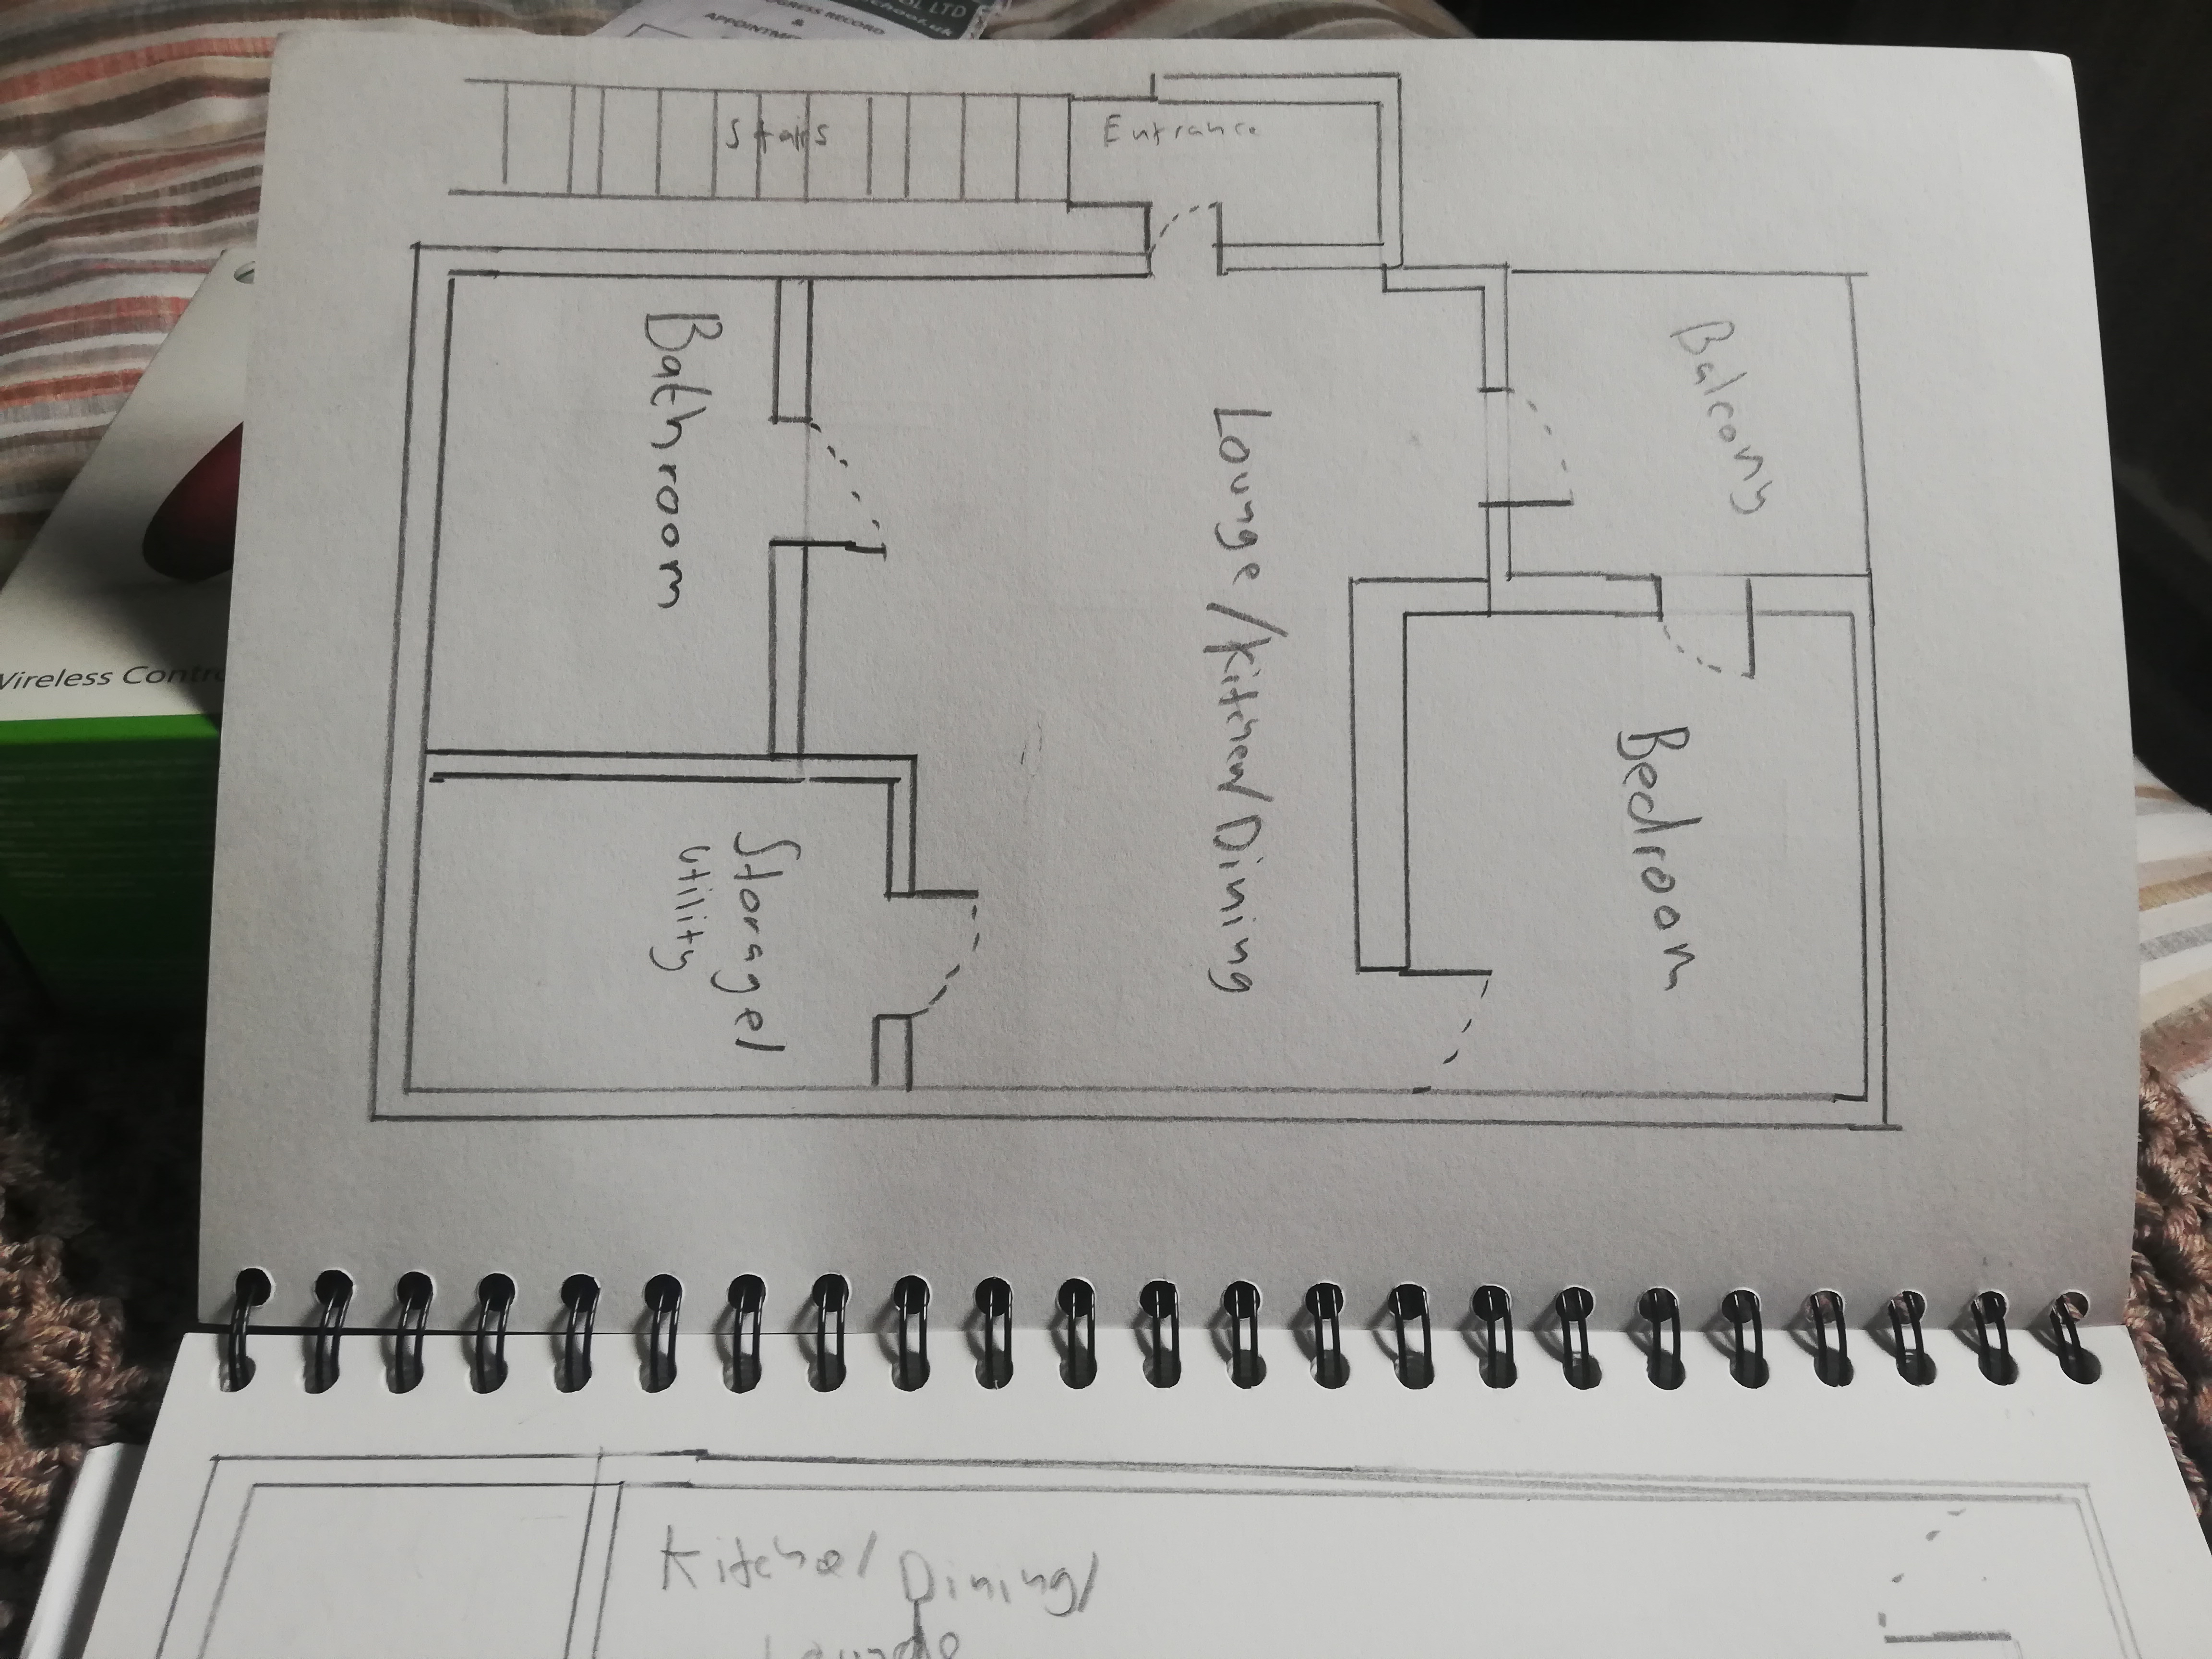 OL LTD
GRESS RECORD
&
APPOINTME
Stairs
Entrance
Bathroom
Balcony
Lounge/Kitchen/Dining
Bedroom
Storage/
Utility
Wireless Contro
Kitche/Dining/
Lounge